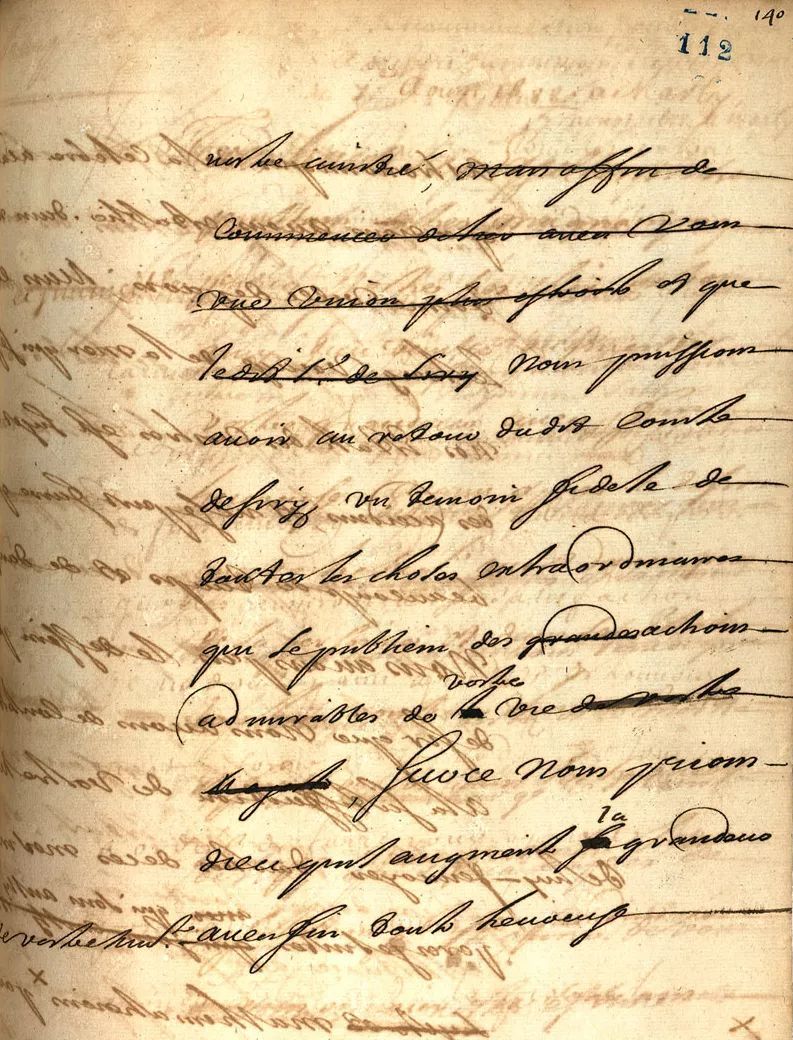 140
112
vostre amitié, mais affin de
commencer delier avec vous
une Union plus estroite et que
ledit Sr de Siry Nous puissions
avoir au retour dudit Comte
de Siry, un temoin fidele de
toutes les choses extraordinaires
qui se publient des grandes actions
vostre
admirables de la Vie de vostre
Majesté, Surce Nous prions
la
dieu quil augmente sa grandeur
de vostre haut.se avec fin toute heureuse